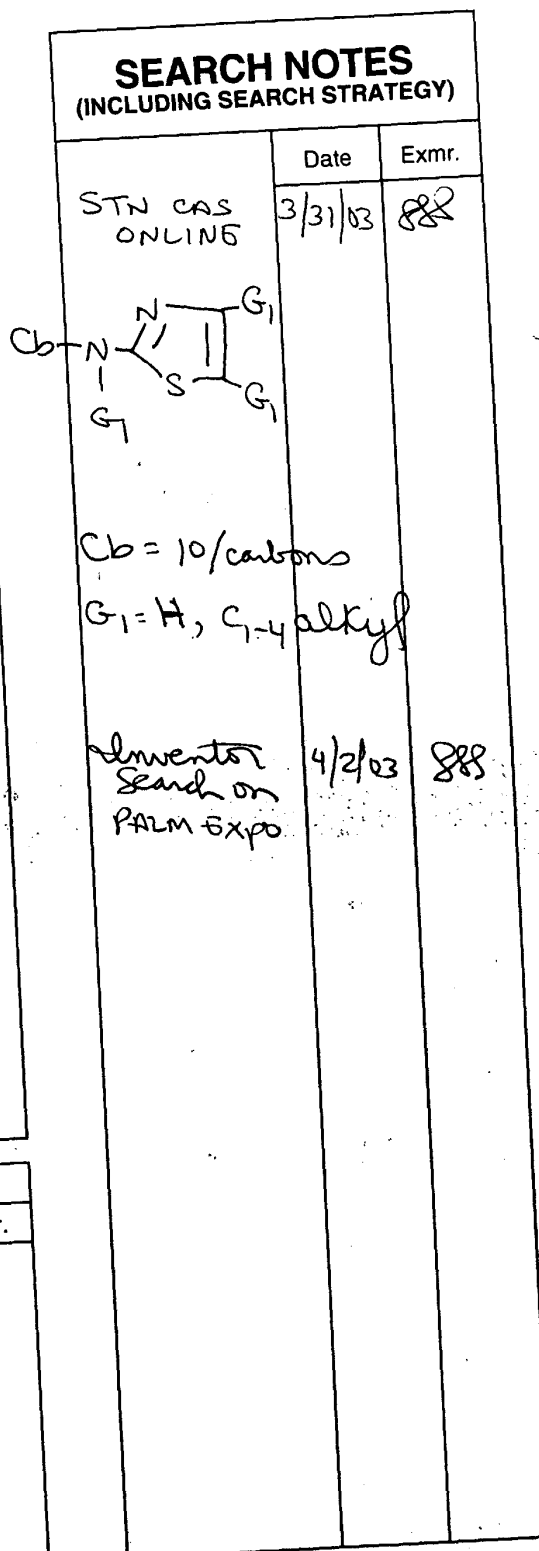 SEARCH NOTES
(INCLUDING SEARCH STRATEGY)
Date Exmr.
STN CAS 3/31/03
ONLINE
N G1
Cb N
S G1
G1
Cb = 10/carbons
G1 = H, C1-4 alkyl
Inventor 4/2/03
Search on
PALM Expo